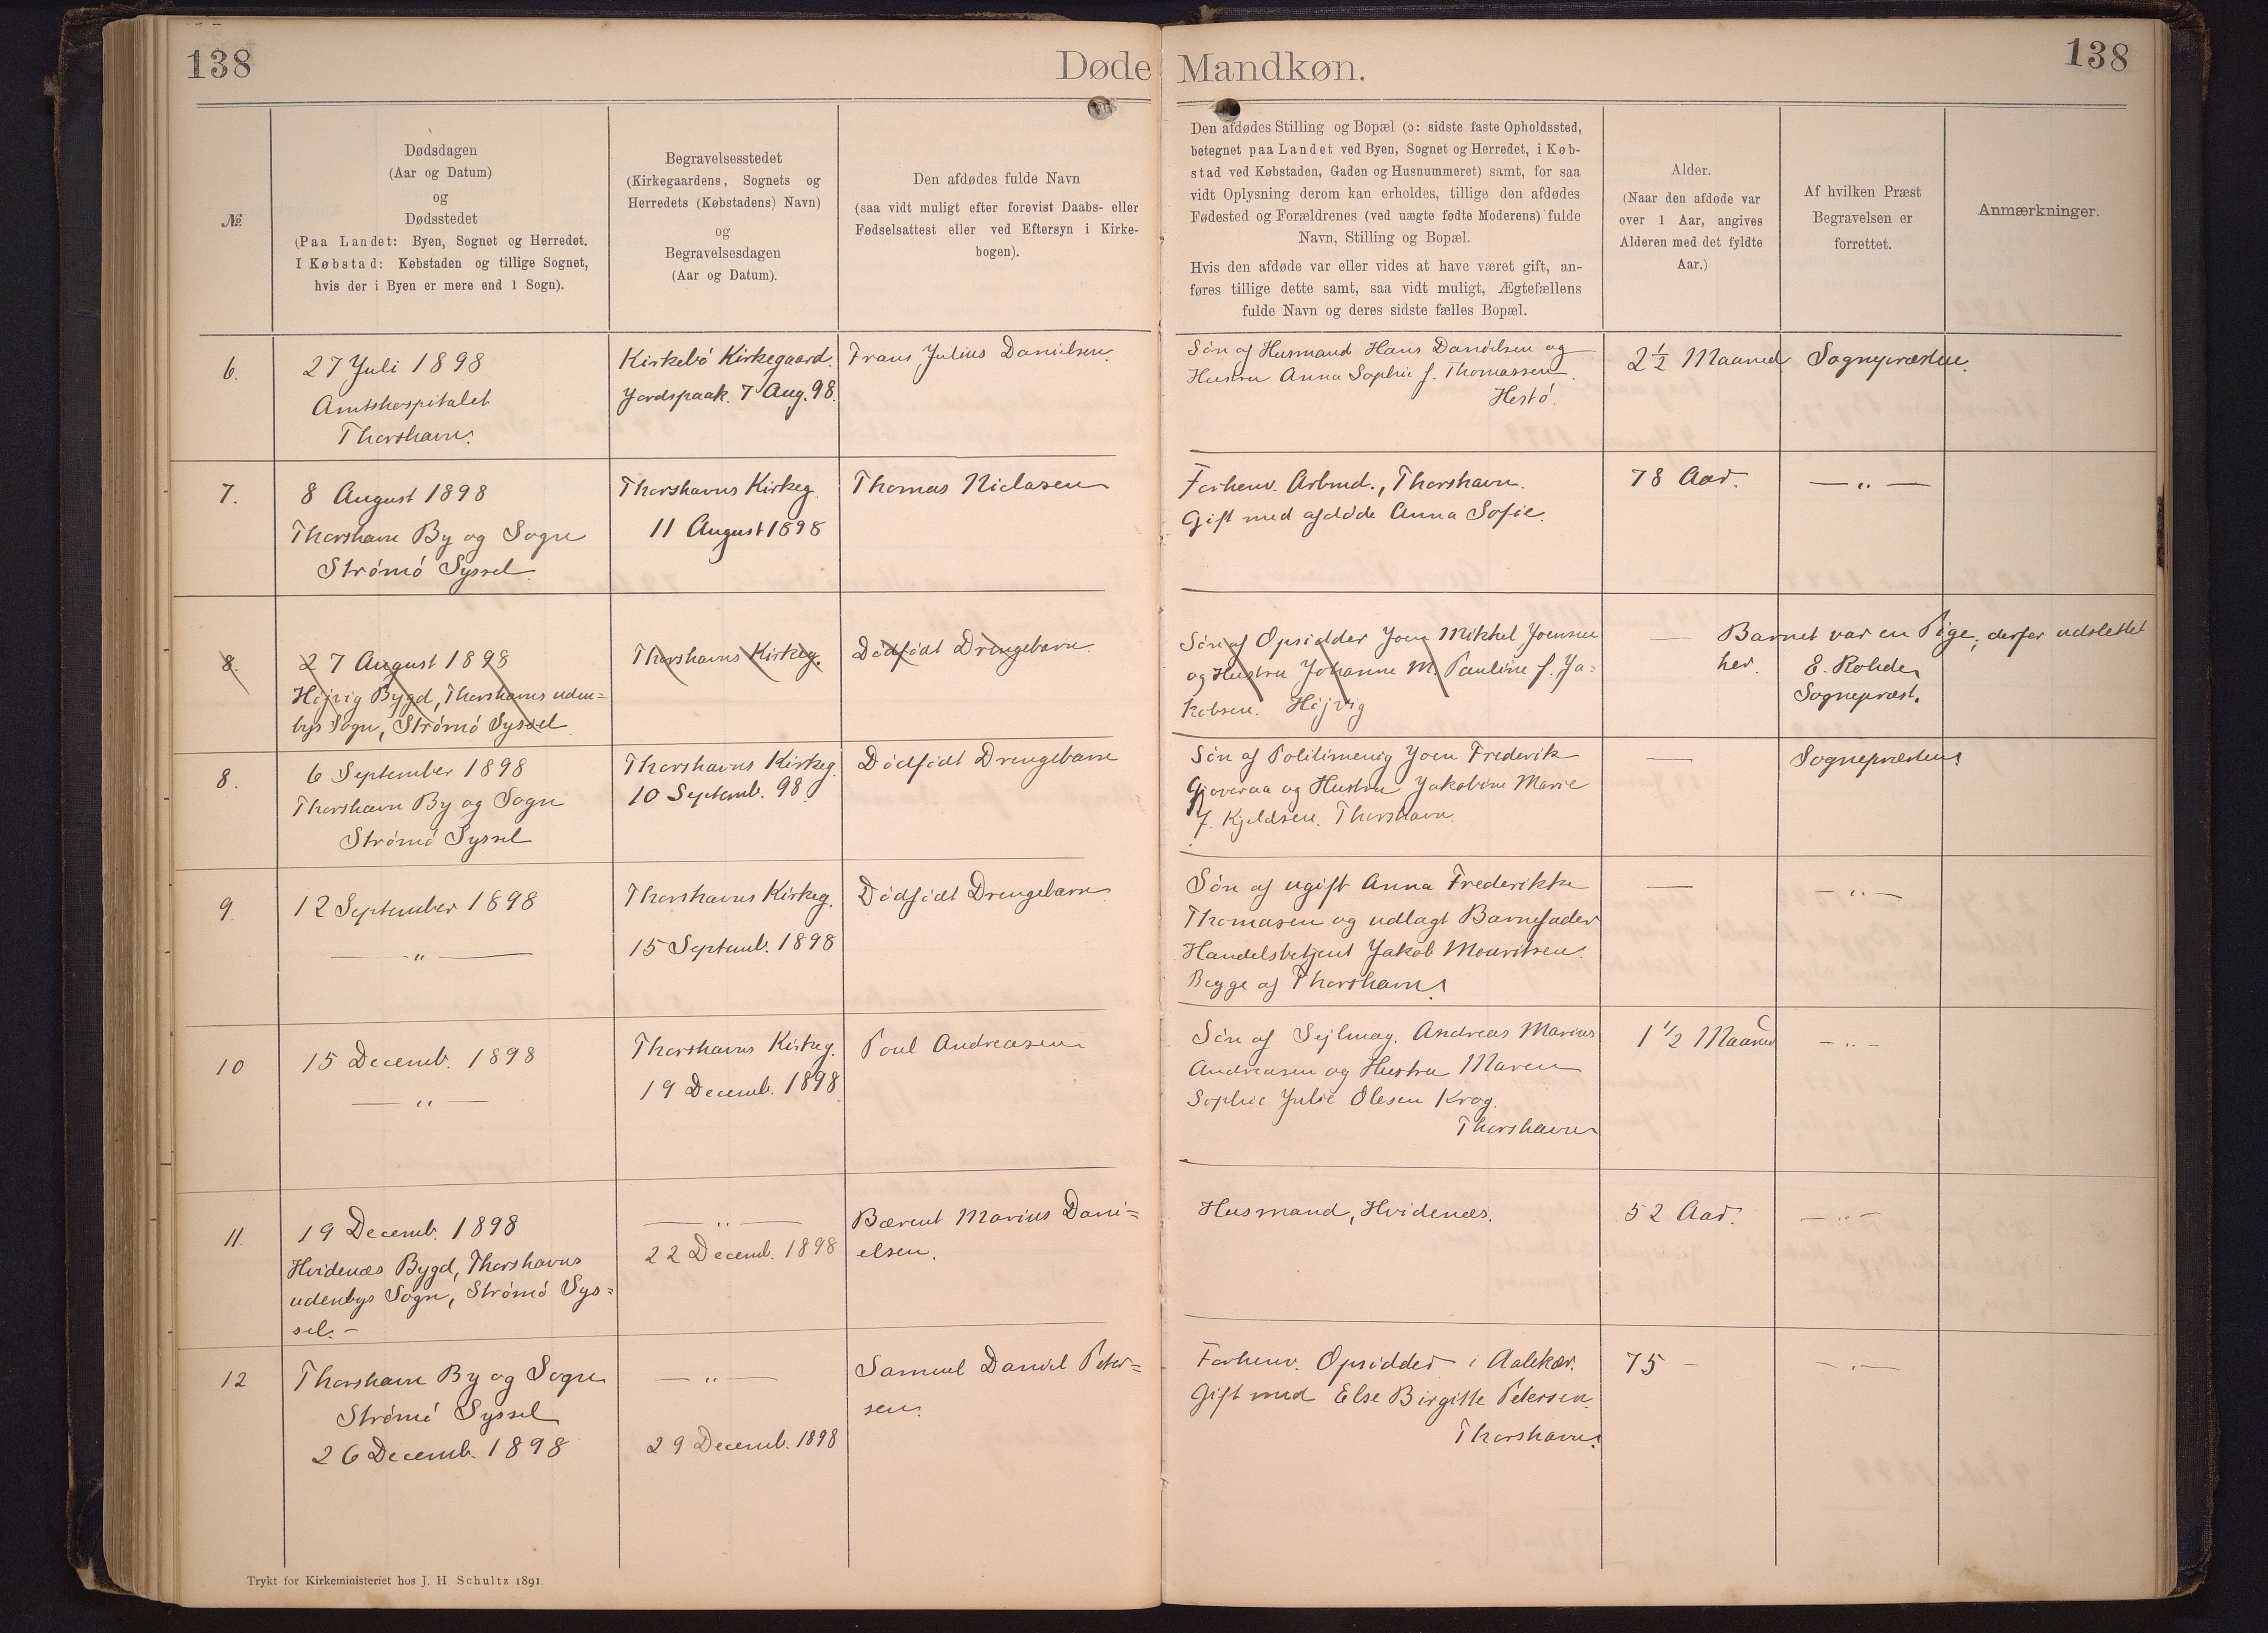 138
Døde Mandkøn.
138
№
Dødsdagen
(Aar og Datum)
og
Dødsstedet
(Paa Landet: Byen, Sognet og Herredet.
I Købstad: Købstaden og tillige Sognet,
hvis der i Byen er mere end 1 Sogn).
Begravelsesstedet
(Kirkegaardens, Sognets og
Herredets (Købstadens) Navn)
og
Begravelsesdagen
(Aar og Datum).
Den afdødes fulde Navn
(saa vidt muligt efter forevist Daabs- eller
Fødselsattest eller ved Eftersyn i Kirke-
bogen).
Den afdødes Stilling og Bopæl (ɔ: sidste faste Opholdssted,
betegnet paa Landet ved Byen, Sognet og Herredet, i Køb-
stad ved Købstaden, Gaden og Husnummeret) samt, for saa
vidt Oplysning derom kan erholdes, tillige den afdødes
Fødested og Forældrenes (ved uægte fødte Moderens) fulde
Navn, Stilling og Bopæl.
Hvis den afdøde var eller vides at have været gift, an-
føres tillige dette samt, saa vidt muligt, Ægtefællens
fulde Navn og deres sidste fælles Bopæl.
Alder.
(Naar den afdøde var
over 1 Aar, angives
Alderen med det fyldte
Aar.)
Af hvilken Præst
Begravelsen er
forrettet.
Anmærkninger.
6.
27 Juli 1898
Amtshospitalet
Thorshavn.
Kirkebö Kirkegaard.
Jordspaak. 7 Aug. 98.
Frans Julius Danielsen.
Sön af Husmand Hans Danielsen og
Hustru Anna Sophie f. Thomassen.
Hestö.
2½ Maaned
Sognepræsten.
7.
8 August 1898
Thorshavn By og Sogn
Strömö Syssel.
Thorshavns Kirkeg.
11 August 1898
Thomas Niclasen
Forhenv. Arbmd., Thorshavn.
Gift med afdöde Anna Sofie.
78 Aar.
— „ —
8.
27 August 1898
Höjvig Bygd, Thorshavns uden=
bys Sogn, Strömö Syssel
Thorshavns Kirkeg.
Dödfödt Drengebarn.
Sön af Opsidder Joen Mikkel Joensen
og Hustru Johanne M. Pauline f. Ja=
kobsen. Höjvig
—
Barnet var en Pige; derfor udslettet
her.
E. Rohde
Sognepræst.
8.
6 September 1898
Thorshavn By og Sogn
Strömö Syssel
Thorshavns Kirkeg.
10 Septemb. 98.
Dödfödt Drengebarn
Sön af Politimenig Joen Frederik
Gjoveraa og Hustru Jakobine Marie
f. Kjeldsen. Thorshavn.
—
Sognepræsten.
9.
12 September 1898
— „ —
Thorshavns Kirkeg.
15 Septemb. 1898
Dödfödt Drengebarn
Sön af ugift Anna Frederikke
Thomasen og udlagt Barnefader
Handelsbetjent Jakob Mouritsen.
Begge af Thorshavn.
—
— „ —
10
15 Decemb. 1898
— „ —
Thorshavns Kirkeg.
19 Decemb. 1898.
Poul Andreasen
Sön af Sejlmag. Andreas Marius
Andreasen og Hustru Maren
Sophie Julie Olesen Krog.
Thorshavn
1 1/2 Maaned
— „ —
11.
19 Decemb. 1898
Hvidenæs Bygd, Thorshavns
udenbys Sogn, Strömö Sys=
sel. —
— „ —
22 Decemb. 1898
Bærent Marius Dani=
elsen.
Husmand, Hvidenæs.
52 Aar.
— „ —
12
Thorshavn By og Sogn
Strömö Syssel
26 Decemb. 1898
— „ —
29 Decemb. 1898
Samuel Daniel Peter=
sen.
Forhenv. Opsidder i Aalekær.
Gift med Else Birgitte Petersen.
Thorshavn.
75 —
— „ —
Trykt for Kirkeministeriet hos J. H. Schultz 1891.